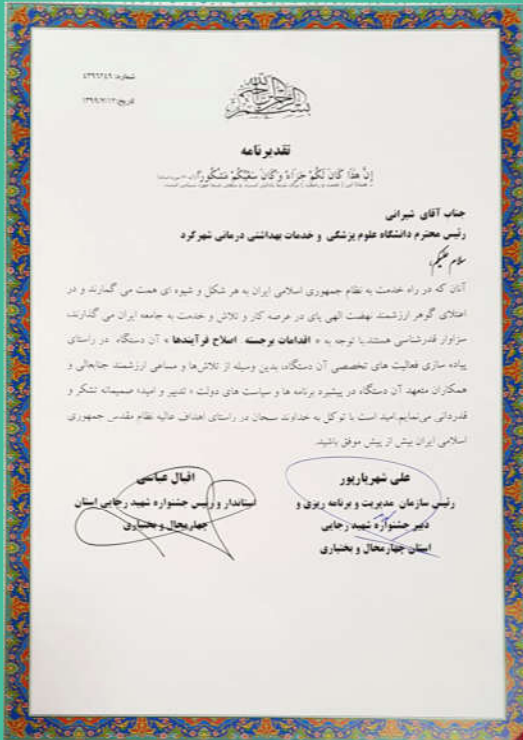 شماره: ۴۳۹۶۲۴۹
تاریخ: ۱۳۹۹/۷/۱۲
بسم الله الرحمن الرحیم
تقدیرنامه
إِنَّ هَذَا كَانَ لَكُمْ جَزَاءً وَكَانَ سَعْيُكُمْ مَشْكُورًا
جناب آقای شیرانی
رئیس محترم دانشگاه علوم پزشکی و خدمات بهداشتی درمانی شهرکرد
سلام علیکم؛
آنان که در راه خدمت به نظام جمهوری اسلامی ایران به هر شکل و شیوه ای همت می گمارند و در
اعتلای گوهر ارزشمند نهضت الهی پای در عرصه کار و تلاش و خدمت به جامعه ایران می گذارند،
سزاوار قدرشناسی هستند.با توجه به « اقدامات برجسته اصلاح فرآیندها » آن دستگاه در راستای
پیاده سازی فعالیت های تخصصی آن دستگاه، بدین وسیله از تلاش‌ها و مساعی ارزشمند جنابعالی و
همکاران متعهد آن دستگاه در پیشبرد برنامه ها و سیاست های دولت « تدبیر و امید» صمیمانه تشکر و
قدردانی می‌نمایم.امید است با توکل به خداوند سبحان در راستای اهداف عالیه نظام مقدس جمهوری
اسلامی ایران بیش از پیش موفق باشید.
علی شهریارپور
رئیس سازمان مدیریت و برنامه ریزی و
دبیر جشنواره شهید رجایی
استان چهارمحال و بختیاری
اقبال عباسی
استاندار و رئیس جشنواره شهید رجایی استان
چهارمحال و بختیاری